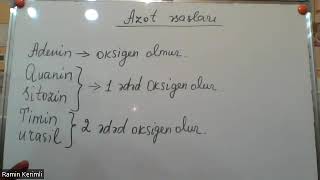 Azot əsasları
Adenin → oksigen olmur.
Quanin
Sitozin } → 1 ədəd oksigen olur.
Timin
urasil } 2 ədəd oksigen olur.
Ramin Kerimli